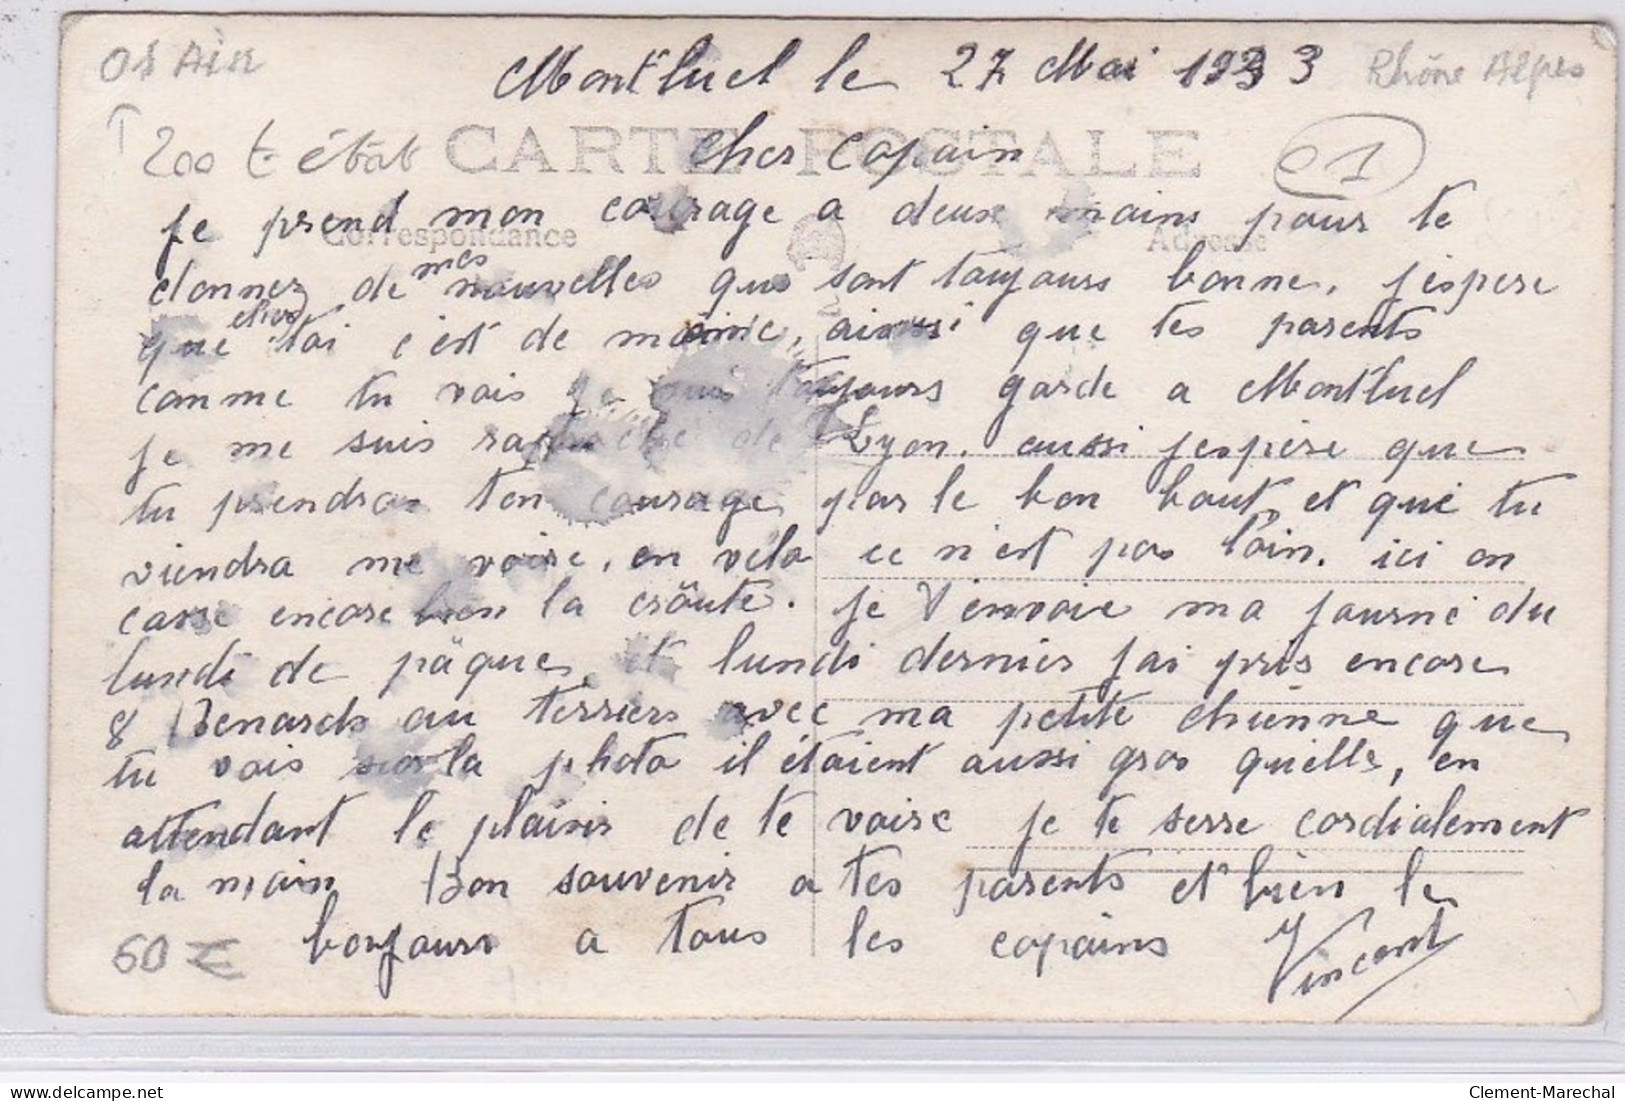 01 Ain
Montluel le 27 Mai 1933 Rhône Alpes
200 t. état CARTE POSTALE cher Copain 01
je prend mon courage a deux mains pour te
Correspondance Adresse
donnez de mes nouvelles que sont toujours bonne, j'espere
que chez toi c'est de mainie, ainssi que tes parents
comme tu vois je suis toujours garde a Montluel
je me suis rapproché de Lyon. aussi j'espère que
tu prendras ton courage par le bon bout et que tu
viendra me voire, en velo ce n'est pas loin. ici on
casse encore bien la crôute. je t'envoie ma journé du
lundi de pâque, et lundi dernier j'ai pris encore
8 Renards au terriers avec ma petite chienne que
tu vois sur la photo il étaient aussi gros qu'elle, en
attendant le plaisir de te voire je te serre cordialement
la main Bon souvenir a tes parents et bien le
60 € bonjours a tous les copains Vincent
delcampe.net Clement-Marechal